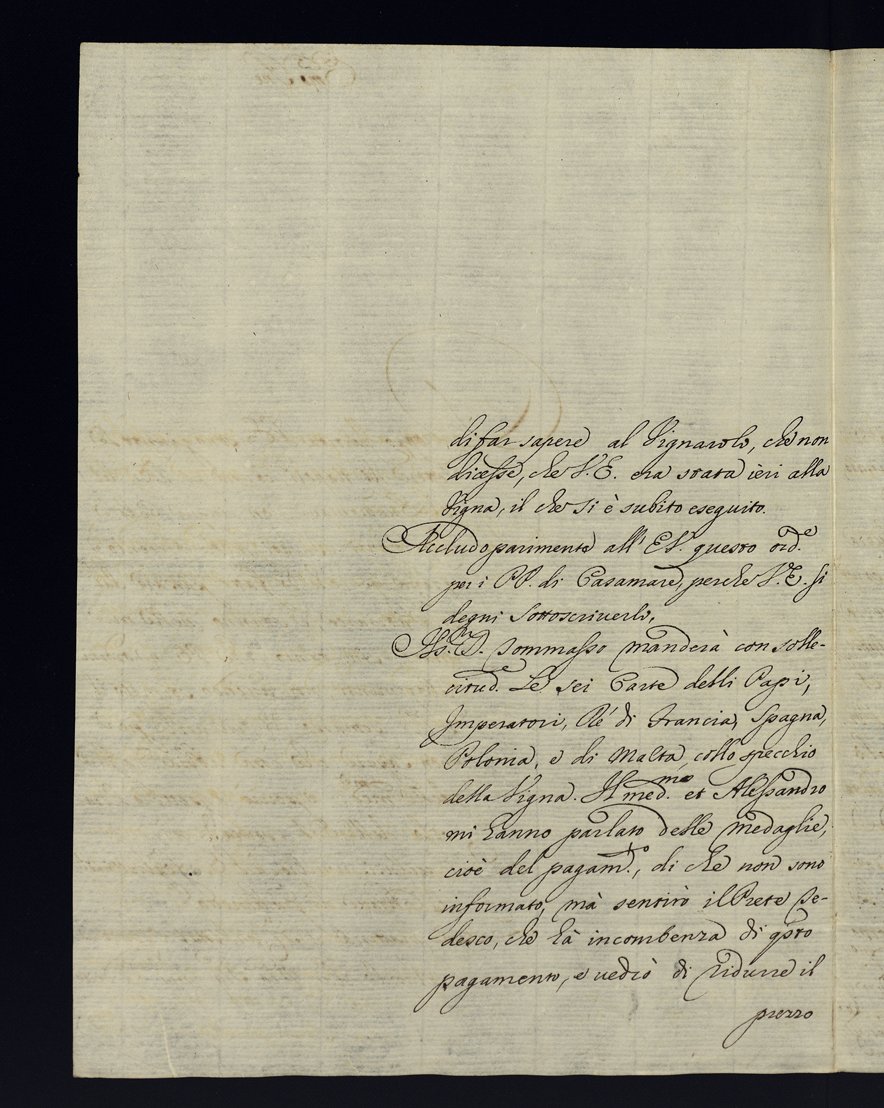 di far sapere al Vignarolo, che non
dicesse, che V.E. era stata ieri alla
Vigna, il che si è subito eseguito.
Accludo parimente all' E.V. questo ord.e
per i PP. di Casamare, perche V.E. si
degni sottoscriverlo.
Tommasso manderà con solle-
citud.e Le sei Carte delli Papi,
Imperatori, Rè di Francia, Spagna,
Polonia, e di Malta, collo specchio
della Vigna. Il med.mo et Alessandro
mi hanno parlato delle medaglie,
cioè del pagam.to, di che non sono
informato, mà sentirò il Prete Te-
desco, che hà incombenza di qsto
pagamento, e vedrò di ridurre il
prezzo